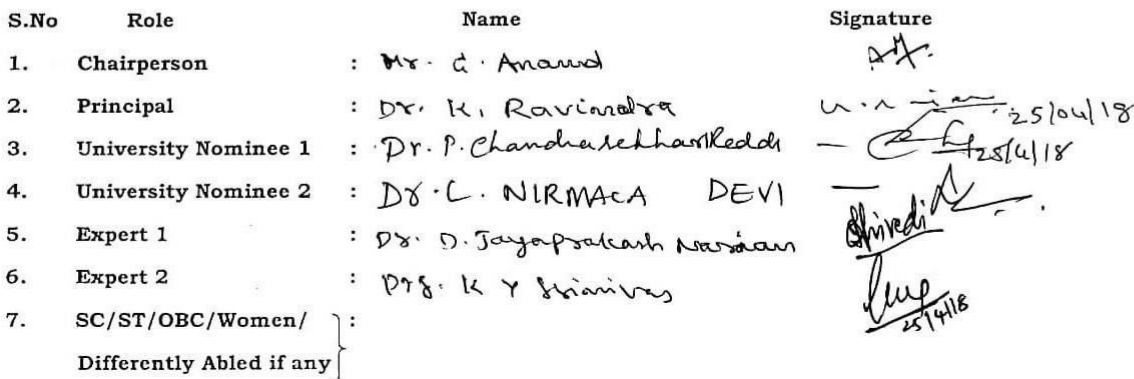 S.No Role Name Signature
1. Chairperson : Mr. G. Anand
2. Principal : Dr. K. Ravindra 25/04/18
3. University Nominee 1 : Dr. P. Chandrasekhar Reddy 25/4/18
4. University Nominee 2 : Dr. L. NIRMALA DEVI
5. Expert 1 : Dr. D. Jayaprakash Narain
6. Expert 2 : K Y Srinivas 25/4/18
7. SC/ST/OBC/Women/ :
Differently Abled if any